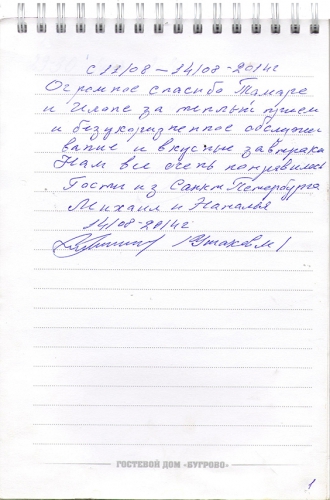 с 13/08 – 14/08-2014г
Огромное спасибо Тамаре
и Илоне за теплый прием
и безукоризненное обслужи
вание и вкусные завтраки
Нам все очень понравилось
Гости из Санкт Петербурга
Михаил и Наталья
14/08-2014г
/Ушаков М/
ГОСТЕВОЙ ДОМ «БУГРОВО»
1